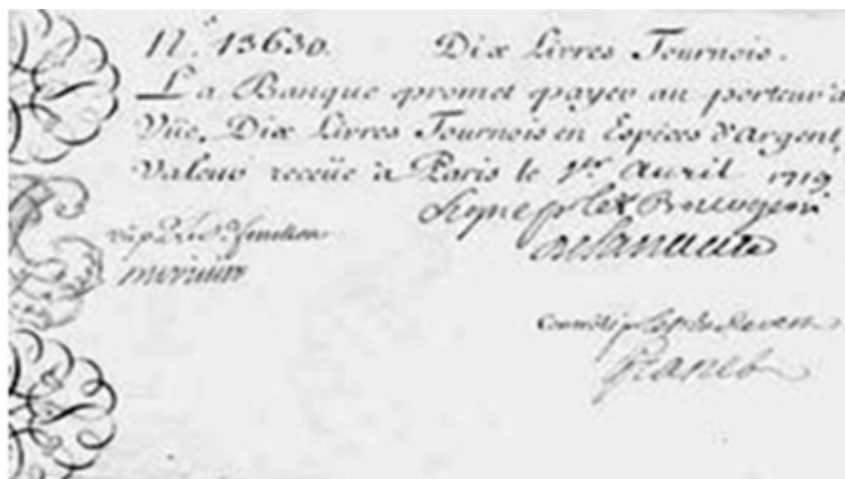 N.° 13630. Dix Livres Tournois.
La Banque promet payer au porteur à
Vüe, Dix Livres Tournois en Espèces d'Argent,
Valeur receüe à Paris le 1.er Avril 1719
Signé p.r le S.r
Vû p.r le S.r
Controllé p.r le S.r
Granet